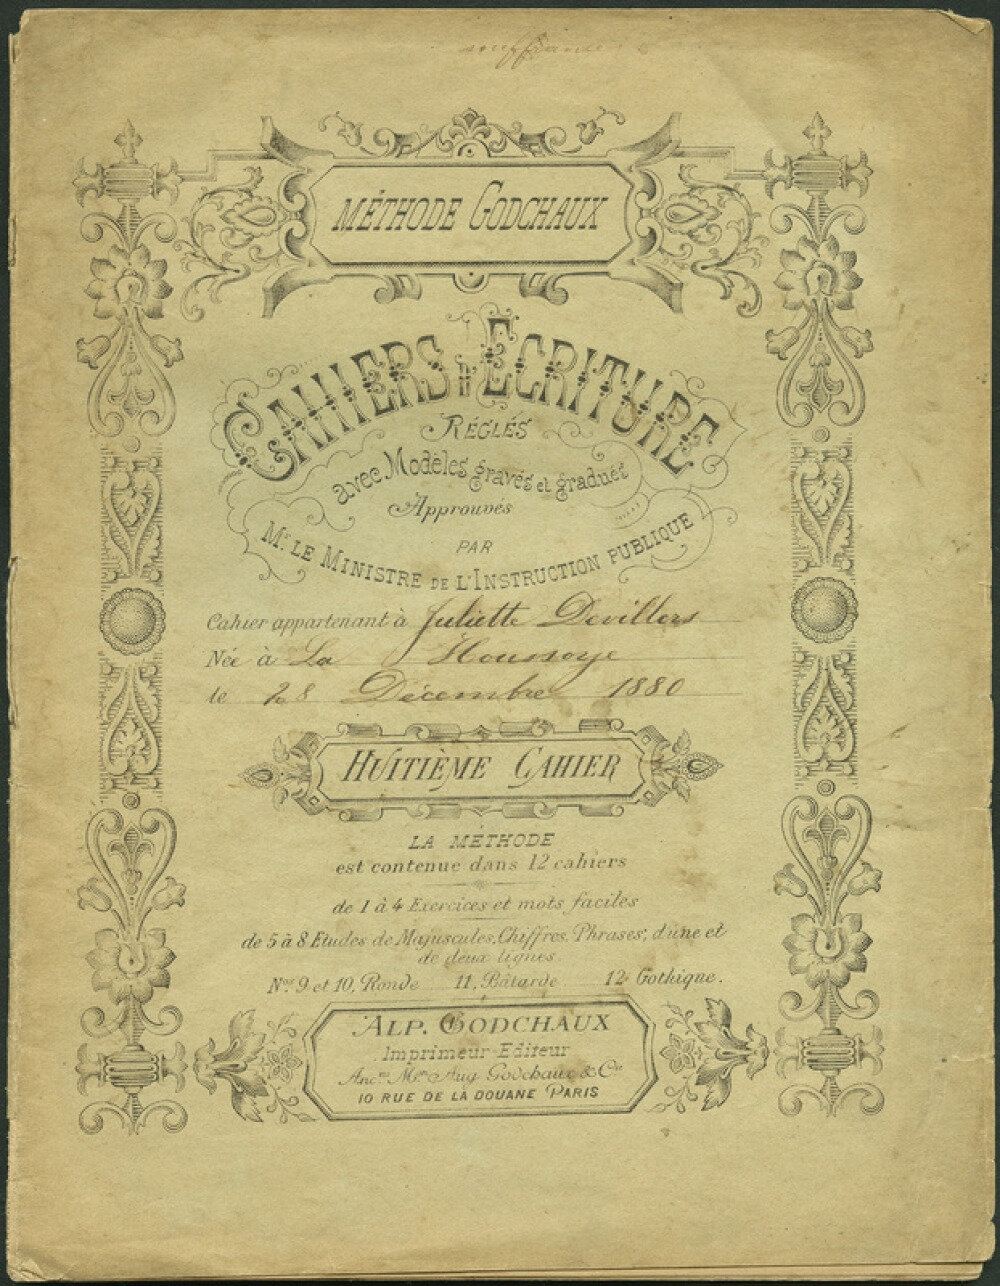 souffrance
MÉTHODE GODCHAUX
CAHIERS D'ECRITURE
RÉGLÉS
avec Modèles gravés et gradués
Approuvés
PAR
Mr. LE MINISTRE DE L'INSTRUCTION PUBLIQUE
Cahier appartenant à Juliette Devillers
Née à La Houssoye
le 28 Décembre 1880
HUITIÈME CAHIER
LA MÉTHODE
est contenue dans 12 cahiers
de 1 à 4 Exercices et mots faciles
de 5 à 8 Etudes de Majuscules, Chiffres, Phrases, d'une et
de deux lignes.
Nos. 9 et 10, Ronde 11, Bâtarde 12 Gothique.
ALP. GODCHAUX
Imprimeur-Editeur
Ancne Mon Aug. Godchaux & Cie
10 RUE DE LA DOUANE PARIS